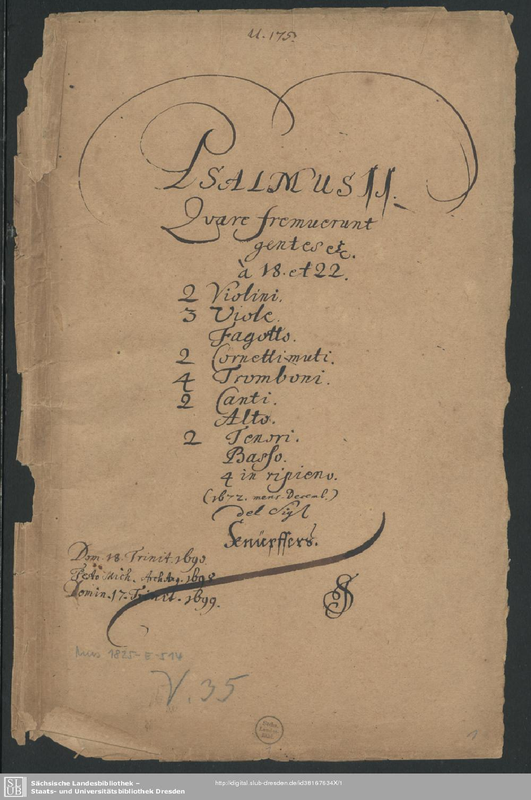 U. 175.
PSALMUS II.
Quare fremuerunt
gentes etc.
à 18. et 22.
2 Violini.
3 Viole.
Fagotto.
2 Cornetti muti.
4 Tromboni.
2 Canti.
Alto.
2 Tenori.
Basso.
4 in ripieno.
(1672. mens. Decemb.)
del Sigl
Knüpffers.
Dom. 18. Trinit. 1690.
Festo Mich. Archang. 1698.
Domin. 17. Trinit. 1699.
Mus. 1825-E-514
V. 35
1
Sächsische Landesbibliothek –
Staats- und Universitätsbibliothek Dresden
http://digital.slub-dresden.de/id38167634X/1